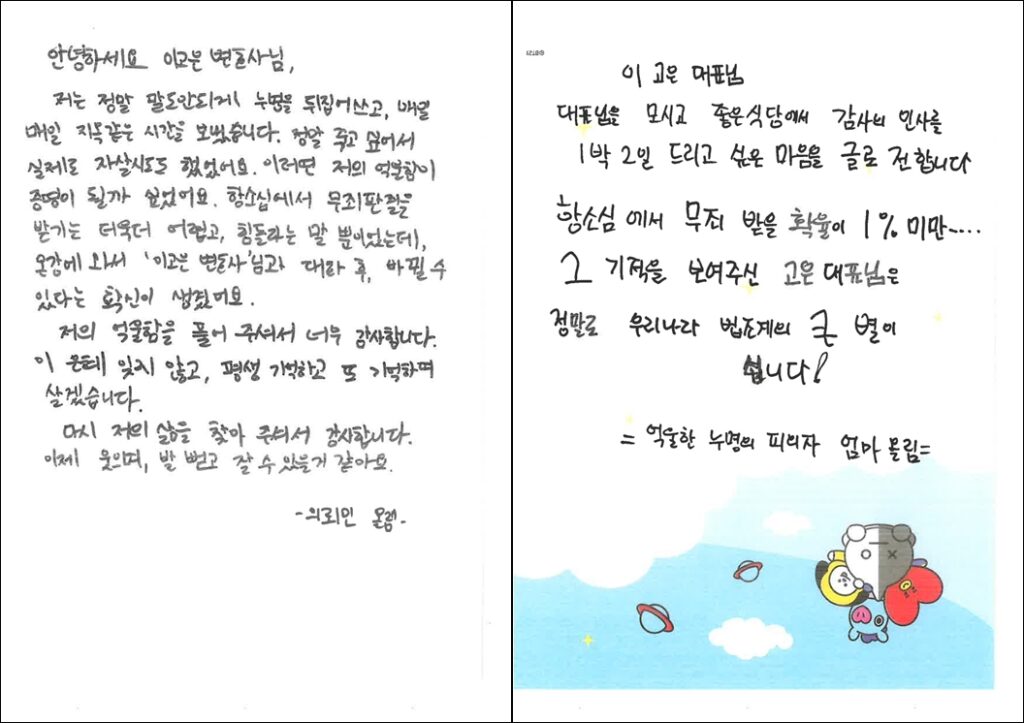 안녕하세요 이고은 변호사님,
저는 정말 말도안되게 누명을 뒤집어쓰고, 매일
매일 지옥같은 시간을 보냈습니다. 정말 죽고 싶어서
실제로 자살시도도 했었어요. 이러면 저의 억울함이
증명이 될까 싶었어요. 항소심에서 무죄판결을
받기는 더욱더 어렵고, 힘들라는 말 뿐이었는데,
온강에 와서 '이고은 변호사'님과 대화 후, 바뀔 수
있다는 확신이 생겼어요.
저의 억울함을 풀어 주셔서 너무 감사합니다.
이 은혜 잊지 않고, 평생 기억하고 또 기억하며
살겠습니다.
다시 저의 삶을 찾아 주셔서 감사합니다.
이제 웃으며, 발 뻗고 잘 수 있을거 같아요.
-의뢰인 올림-
©BT21
이 고은 대표님
대표님을 모시고 좋은식당에서 감사의 인사를
1박 2일 드리고 싶은 마음을 글로 전합니다
항소심 에서 무죄 받을 확율이 1% 미만.....
그 기적을 보여주신 고은 대표님은
정말로 우리나라 법조계의 큰 별이
십니다!
= 억울한 누명의 피의자 엄마 올림=